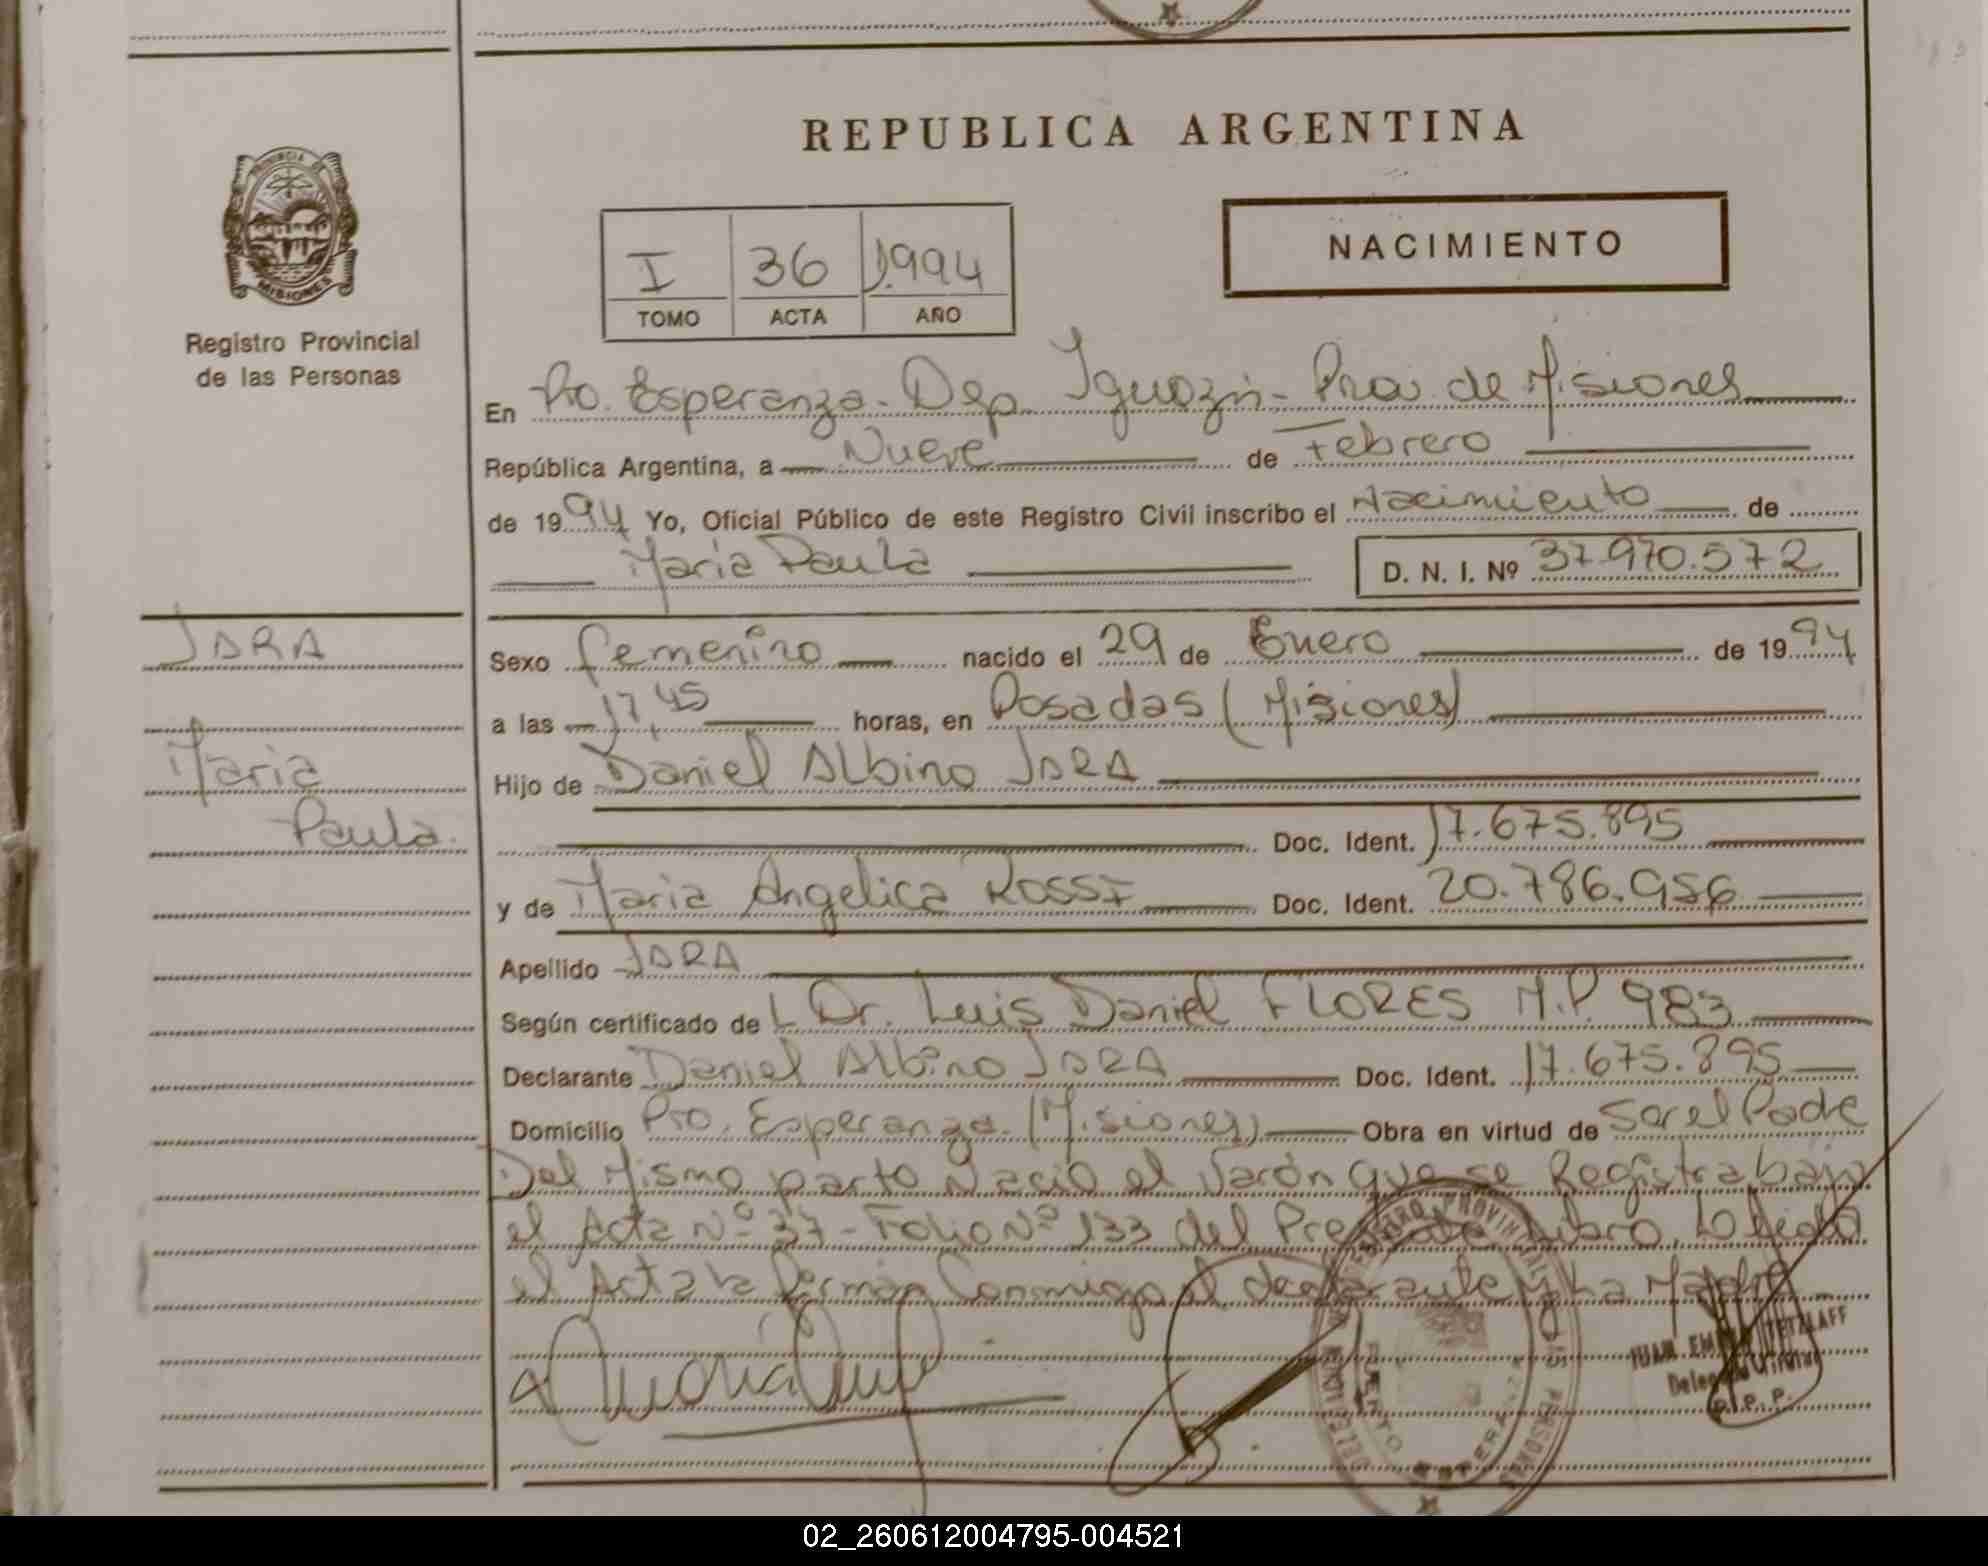 REPUBLICA ARGENTINA
PROVINCIA DE
MISIONES
Registro Provincial
de las Personas
I 36 1.994
TOMO ACTA AÑO
NACIMIENTO
En Pto. Esperanza - Dep. Iguazú - Prov. de Misiones
República Argentina, a Nueve de Febrero
de 1994 Yo, Oficial Público de este Registro Civil inscribo el Nacimiento de
Maria Paula D. N. I. Nº 37.970.572
JARA
Maria
Paula.
Sexo femenino nacido el 29 de Enero de 1994
a las 17,45 horas, en Posadas (Misiones)
Hijo de Daniel Albino JARA
Doc. Ident. 17.675.895
y de Maria Angelica ROSSI Doc. Ident. 20.786.956
Apellido JARA
Según certificado de L Dr. Luis Daniel FLORES M.P. 983
Declarante Daniel Albino JARA Doc. Ident. 17.675.895
Domicilio Pto. Esperanza. (Misiones) Obra en virtud de Ser el Padre
Del Mismo parto Nació el Varón que se Registra bajo
el Acta Nº 37 - Folio Nº 133 del Presente Libro. Leida
el Acta la firman Conmigo el declarante y la Madre
JUAN EMILIO TETZLAFF
Delegado Titular
R.P.P.
REGISTRO PROVINCIAL DE LAS PERSONAS
DELEGACION
PUERTO ESPERANZA
02_260612004795-004521